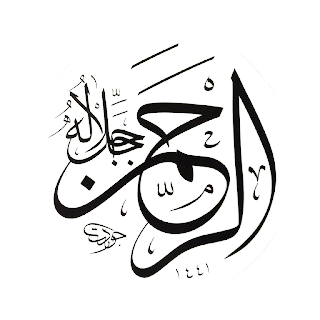 الرحمن
جل جلاله
١٤٤١